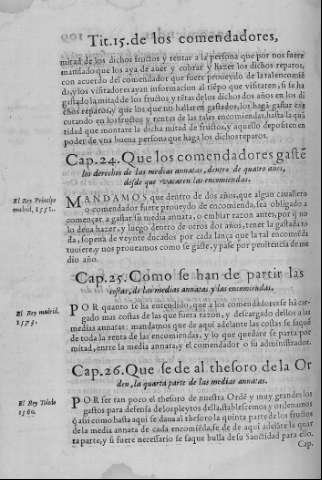 Tit.15.de los comendadores,
mitad de los dichos fructos y rentar a la persona que por nos fuere
mandado que los aya de auer y cobrar y hazer los dichos reparos,
con acuerdo del comendador que fuere proueydo de la tal encomiẽ
da, y los visitadores ayan informacion al tiẽpo que visitarẽ, si se ha
gastado la mitad de los fructos y rẽtas delos dichos dos años en los di
chos reparos, y que los que no hallarẽ gastados, los hagã gastar exe
cutando en los fructos y rentas de las tales encomiẽdas, hasta la quã
tidad que montare la dicha mitad de fructos, y aquello depositen en
poder de vna buena persona que haga los dichos reparos.
Cap.24. Que los comendadores gastẽ
los derechos de las medias annatas, dentro de quatro años,
desde que vacaren las encomiendas.
El Rey Principe
madrid, 1551.
MANDAMOS que dentro de dos años, que algun cauallero
o comendador fuere proueydo de encomiẽda, sea obligado a
començar a gastar su media annata, o embiar razon antes, por q̃ no
lo deua hazer, y luego dentro de otros dos años, tenerla gastada to
da, sopena de veynte ducados por cada lança que la tal encomiẽda
touiere, y nos proueamos como se gaste, y pase por penitencia de me
dio año.
Cap.25. Como se han de partir las
costas, de las medias annatas y las encomiendas.
El Rey madrid.
1573.
POR quanto se ha entendido, que a los comendadores se hã car-
gado mas costas de las que fuera razon, y descargado dellos a las
medias annatas: mandamos que de aqui adelante las costas se saquẽ
de toda la renta de las encomiendas, y lo que quedare se parta por
mitad, entre la media annata, y el comendador o su administrador.
Cap.26. Que se de al thesoro de la Or
den, la quarta parte de las medias annatas.
El Rey Toledo
1560.
POR ser tan poco el thesoro de nuestra Ordẽ y muy grandes los
gastos para defensa de los pleytos della, stablescemos y ordenamos
q̃ assi como hasta aqui se daua al thesoro la quinta parte de los fructos
de la media annata de cada encomiẽda, se de de aqui adelãte la quar
ta parte, y si fuere necessario se saque bulla de su Sanctidad para ello.
Cap.